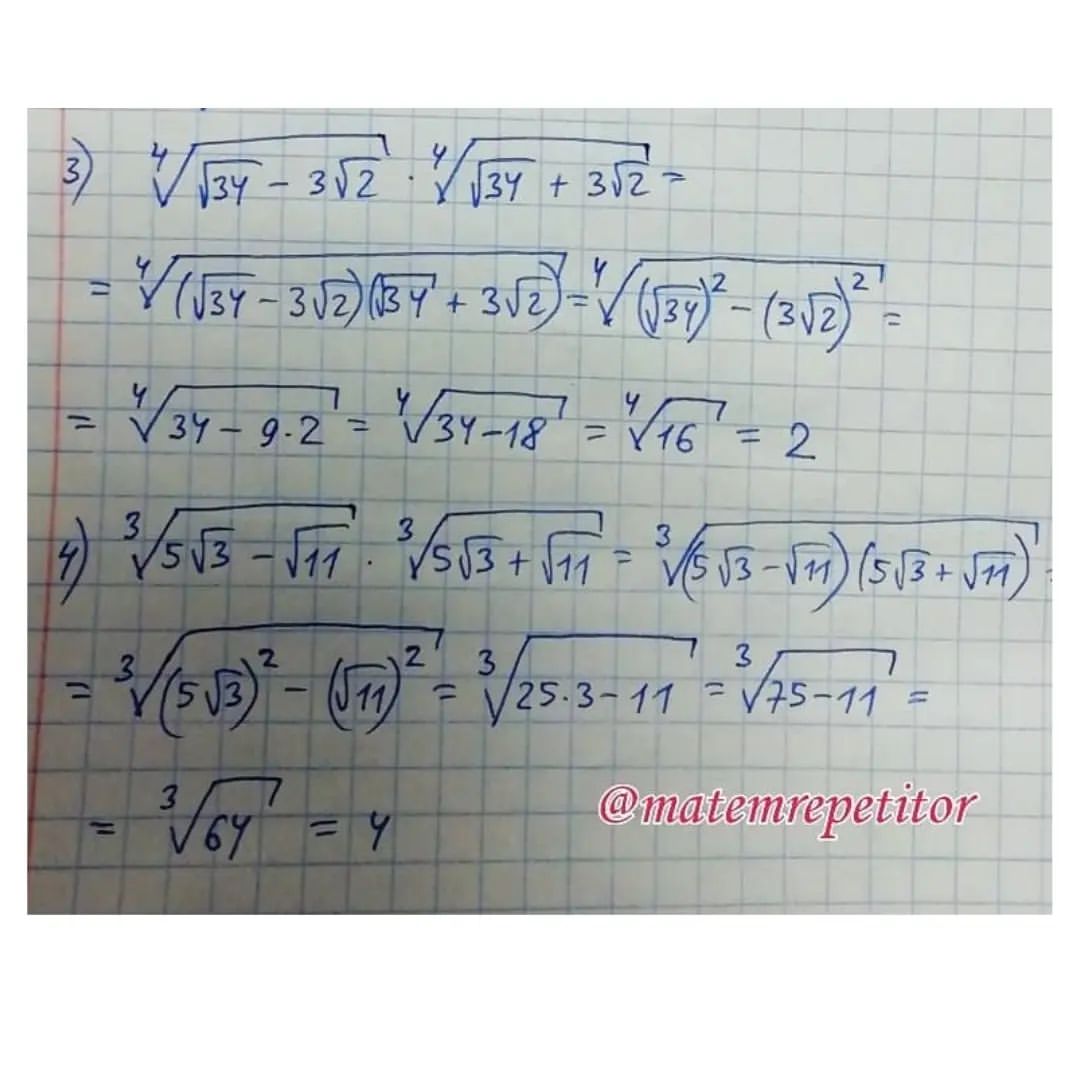 3) ∜(√34 − 3√2) · ∜(√34 + 3√2) =
= ∜((√34 − 3√2)(√34 + 3√2)) = ∜((√34)² − (3√2)²) =
= ∜(34 − 9·2) = ∜(34−18) = ∜16 = 2
4) ∛(5√3 − √11) · ∛(5√3 + √11) = ∛((5√3 − √11)(5√3 + √11)) =
= ∛((5√3)² − (√11)²) = ∛(25·3 − 11) = ∛(75 − 11) =
= ∛64 = 4
@matemrepetitor